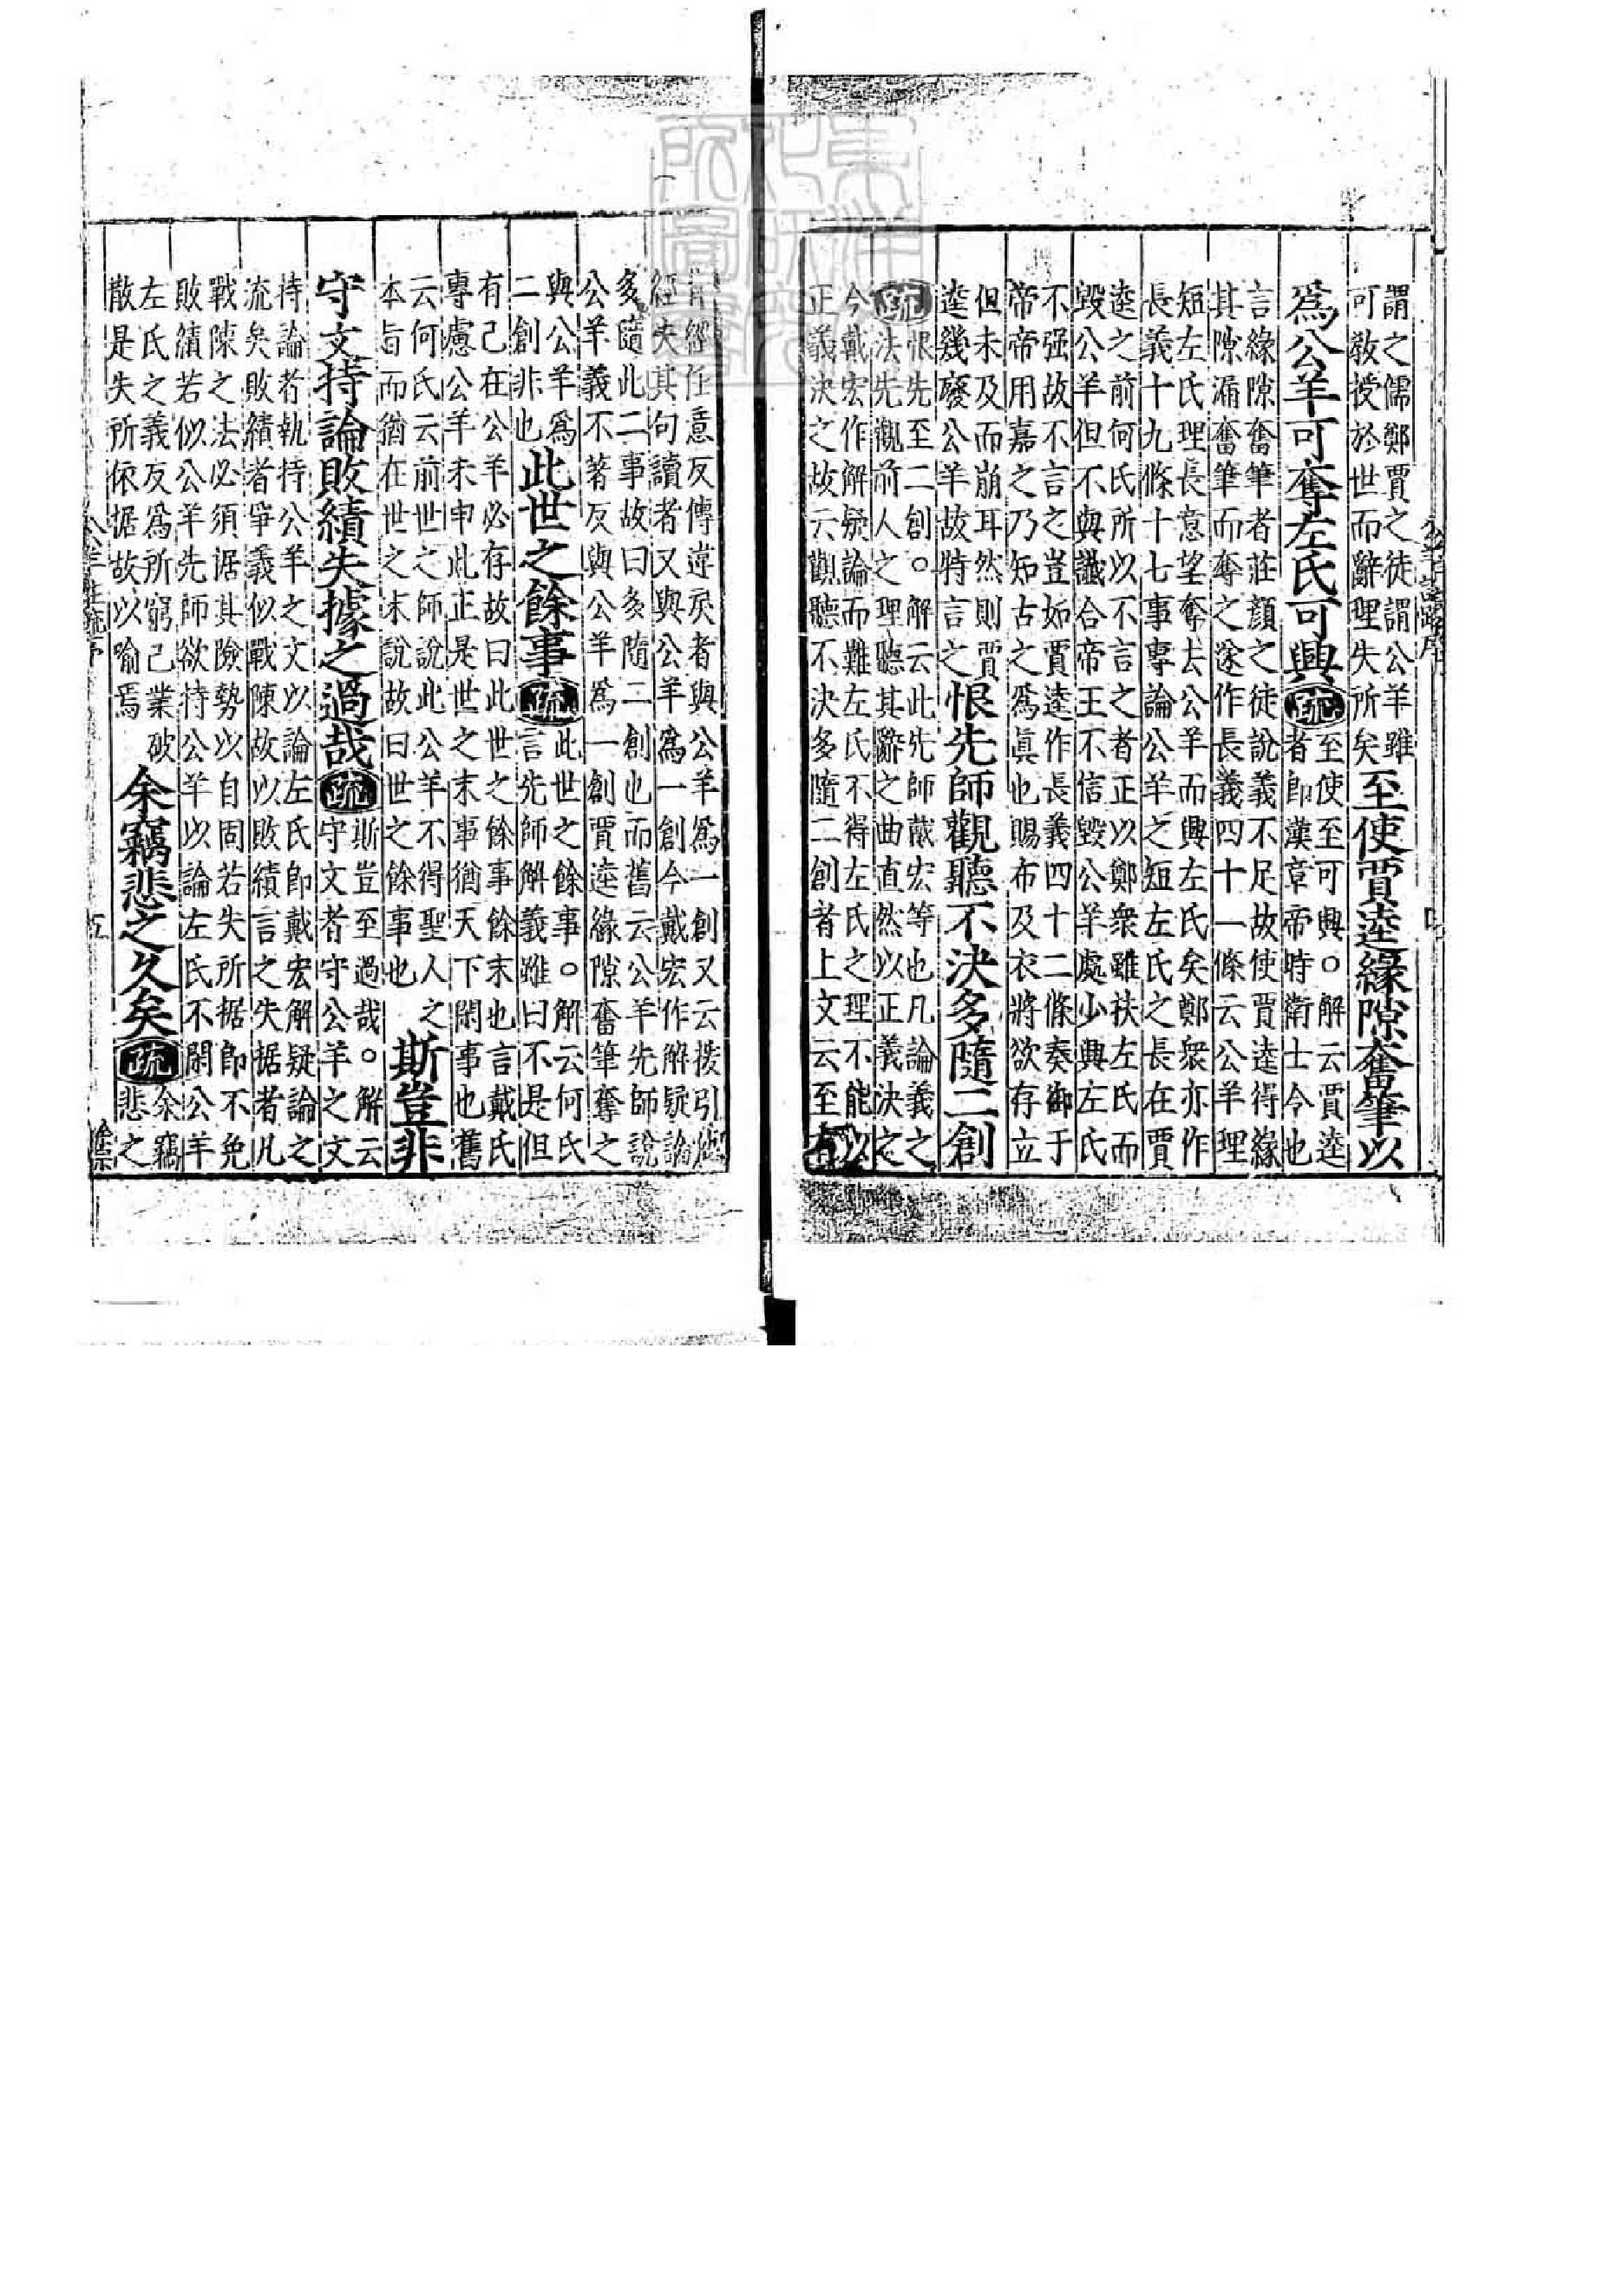 謂之儒鄭賈之徒謂公羊雖
可教授於世而辭理失所矣
至使賈逵緣隙奮筆以
爲公羊可奪左氏可興疏
至使至可興○解云賈逵
者即漢章帝時衛士令也
言緣隙奮筆者莊顏之徒說義不足故使賈逵得緣
其隙漏奮筆而奪之遂作長義四十一條云公羊理
短左氏理長意望奪去公羊而興左氏矣鄭衆亦作
長義十九條十七事專論公羊之短左氏之長在賈
逵之前何氏所以不言之者正以鄭衆雖扶左氏而
毀公羊但不與讖合帝王不信毀公羊處少興左氏
不强故不言之豈如賈逵作長義四十二條奏御于
帝帝用嘉之乃知古之爲眞也賜布及衣將欲存立
但未及而崩耳然則賈
逵幾廢公羊故特言之
恨先師觀聽不決多隨二創
疏
恨先至二創○解云此先師戴宏等也凡論義之
法先觀前人之理聽其辭之曲直然以正義決之
今戴宏作解疑論而難左氏不得左氏之理不能以
正義決之故云觀聽不決多隨二創者上文云至有
背經任意反傳違戾者與公羊爲一創又云援引他
經失其句讀者又與公羊爲一創今戴宏作解疑論
多隨此二事故曰多隨二創也而舊云公羊先師說
公羊義不著反與公羊爲一創賈逵緣隙奮筆奪之
與公羊爲
二創非也
此世之餘事疏
此世之餘事○解云何氏
言先師解義雖曰不是但
有己在公羊必存故曰此世之餘事餘末也言戴氏
專慮公羊未申此正是世之末事猶天下閑事也舊
云何氏云前世之師說此公羊不得聖人之
本旨而猶在世之末說故曰世之餘事也
斯豈非
守文持論敗績失據之過哉疏
斯豈至過哉○解云
守文者守公羊之文
持論者執持公羊之文以論左氏即戴宏解疑論之
流矣敗績者爭義似戰陳故以敗績言之失据者凡
戰陳之法必須据其險勢以自固若失所据即不免
敗績若似公羊先師欲持公羊以論左氏不閑公羊
左氏之義反爲所窮己業破
散是失所依据故以喻焉
余竊悲之久矣疏
余竊
悲之